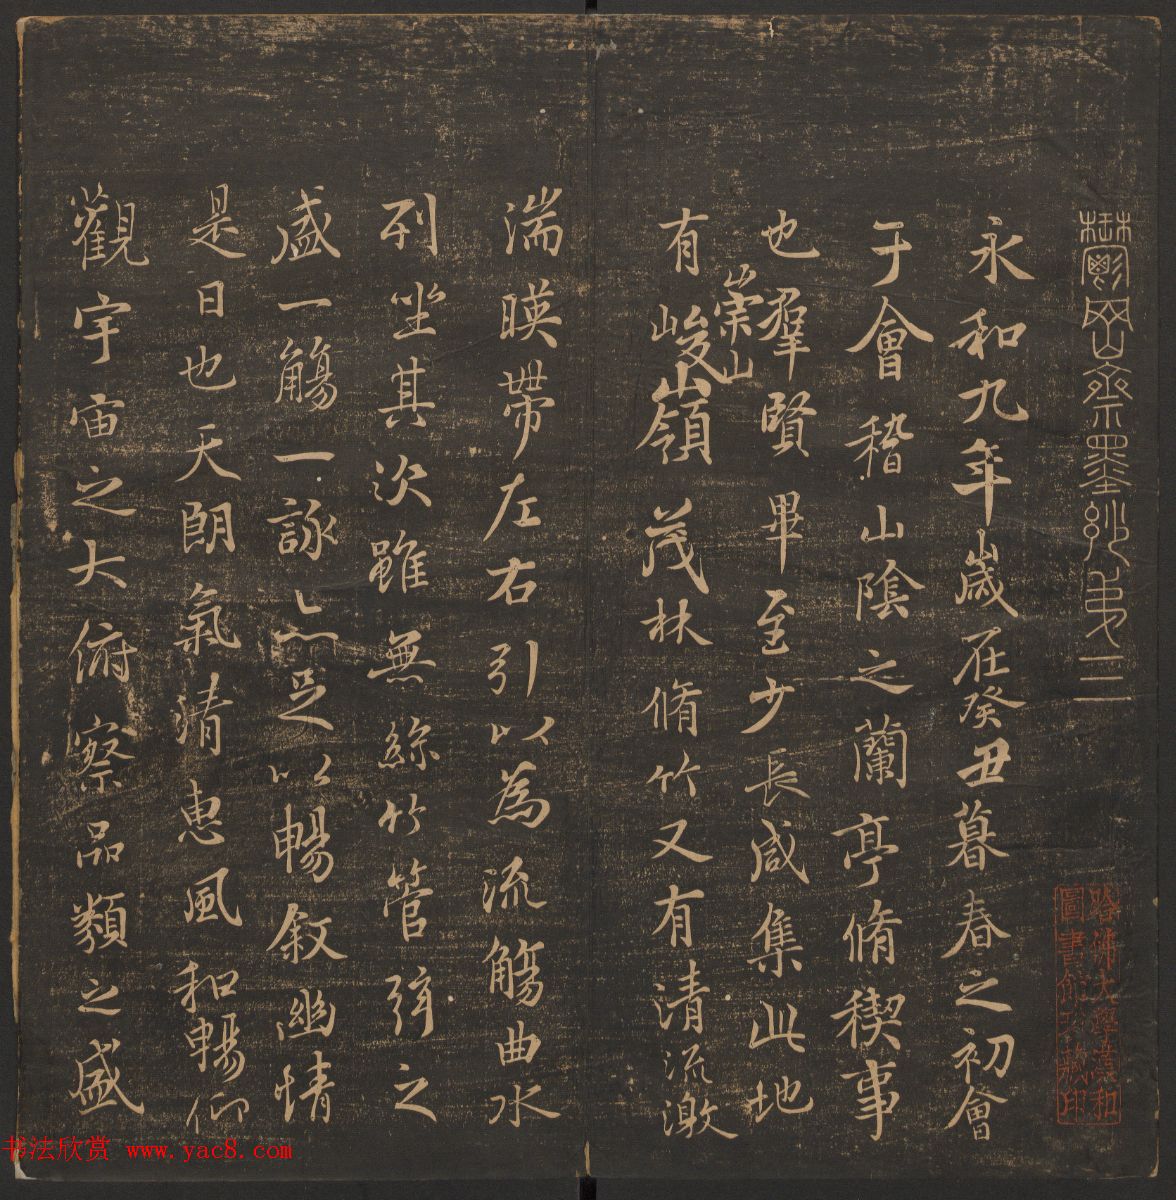 鬱岡齋墨妙第三
永和九年歲在癸丑暮春之初會
于會稽山陰之蘭亭脩稧事
也羣賢畢至少長咸集此地
有崇山峻嶺茂林脩竹又有清流激
湍暎帶左右引以為流觴曲水
列坐其次雖無絲竹管弦之
盛一觴一詠亦足以暢敘幽情
是日也天朗氣清惠風和暢仰
觀宇宙之大俯察品類之盛
哈佛大學漢和
圖書館珍藏印
书法欣赏 www.yac8.com